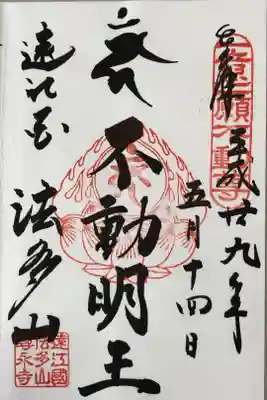 奉拝 平成廿九年
五月十四日
不動明王
遠江国 法多山
遠江國
法多山
尊永寺